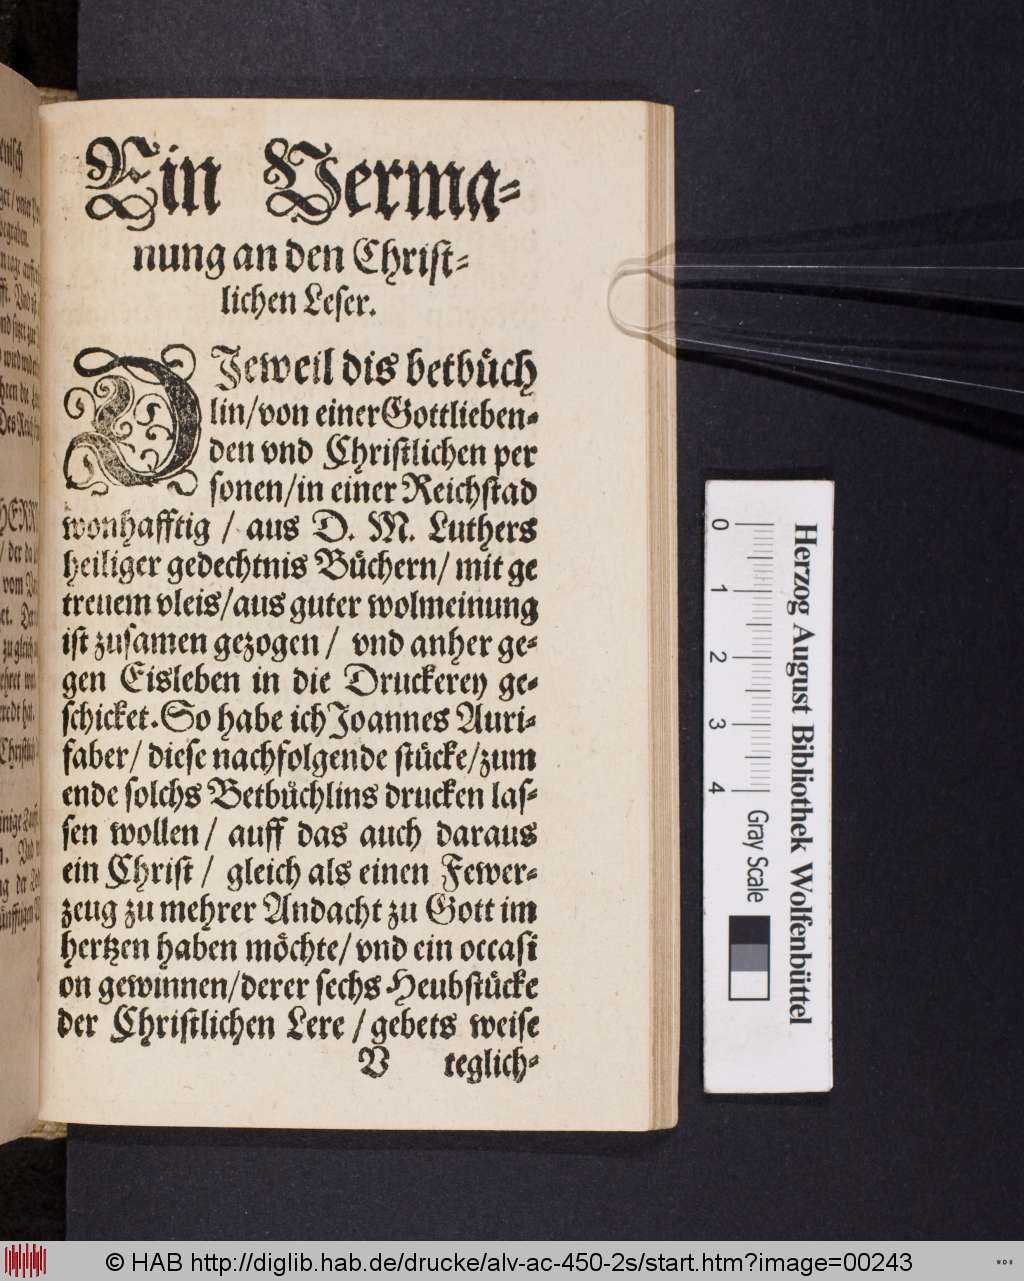 Ein Verma-
nung an den Christ-
lichen Leser.
DJeweil dis betbüch
lin/von einer Gottlieben-
den vnd Christlichen per
sonen/in einer Reichstad
wonhafftig / aus D. M. Luthers
heiliger gedechtnis Büchern/ mit ge
treuem vleis/aus guter wolmeinung
ist zusamen gezogen / vnd anher ge-
gen Eisleben in die Druckerey ge-
schicket. So habe ich Joannes Auri-
faber/ diese nachfolgende stücke/zum
ende solchs Betbüchlins drucken las-
sen wollen/ auff das auch daraus
ein Christ / gleich als einen Fewer-
zeug zu mehrer Andacht zu Gott im
hertzen haben möchte/ vnd ein occasi
on gewinnen/derer sechs Heubstücke
der Christlichen Lere / gebets weise
V teglich-
Herzog August Bibliothek Wolfenbüttel
0 1 2 3 4 Gray Scale
© HAB http://diglib.hab.de/drucke/alv-ac-450-2s/start.htm?image=00243